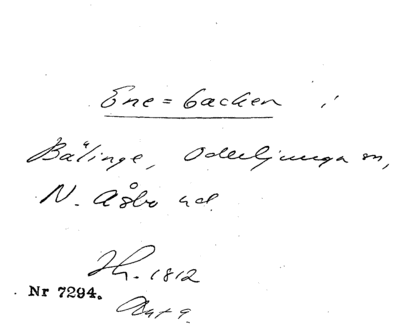 Ene=backen i
Bälinge, Oderljunga sn,
N. Åsbo hd.
Jh. 1812
Nr 7294.
Akt 9.